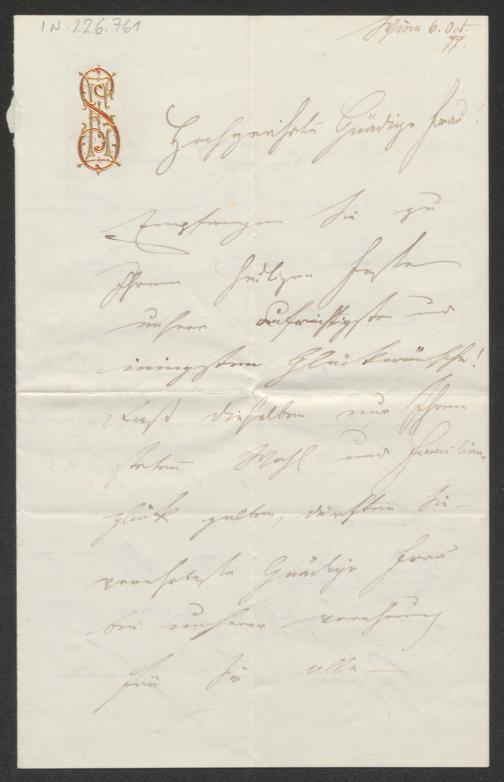 I.N. 226.761
Wien 6. Oct.
77.
Hochgeehrte Gnädige Frau!
Empfangen Sie zu
Ihrem heutigen Feste
unsere aufrichtigsten und
innigsten Glückwünsche!
Daß dieselben nur Ihrem
steten Wohl und Familien-
glück gelten, dürften Sie
verehrteste Gnädige Frau
bei unserer Verehrung
für Sie alle